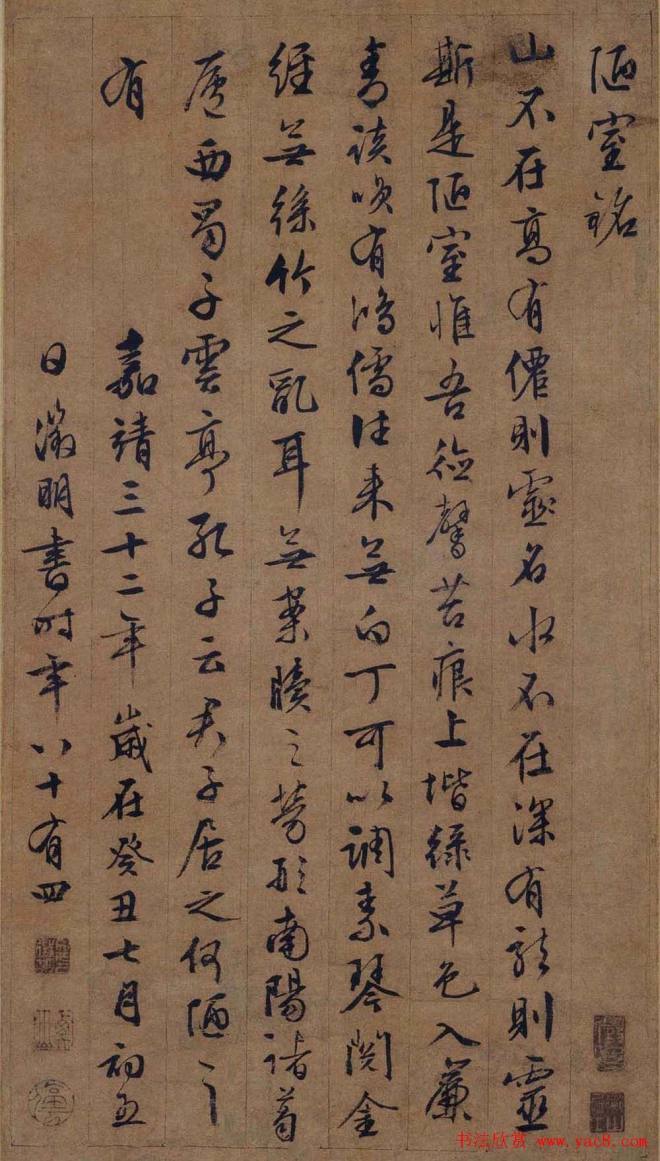 陋室銘
山不在高有僊則靈名水不在深有龍則靈
斯是陋室惟吾德馨苔痕上堦綠草色入簾
青談咲有鴻儒往来無白丁可以調素琴閱金
經無絲竹之亂耳無案牘之勞形南陽諸葛
廬西蜀子雲亭孔子云君子居之何陋之
有
嘉靖三十二年歲在癸丑七月初五
日徵明書時年八十有四
书法欣赏 www.yac8.com